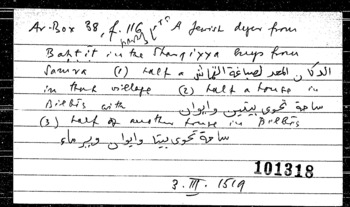 Ar. Box 38, f. 116 A Jewish dyer from
in the Sharqiyya buys from
(1) half a الدكان المعد لصباغة القماش
in that village (2) half a house in
Bilbis with ساحة تحوى بيتين وايوان
(3) half of another house in Bilbis
ساحة تحوى بيتا وايوان وبير ماء
101318
3. III. 1519